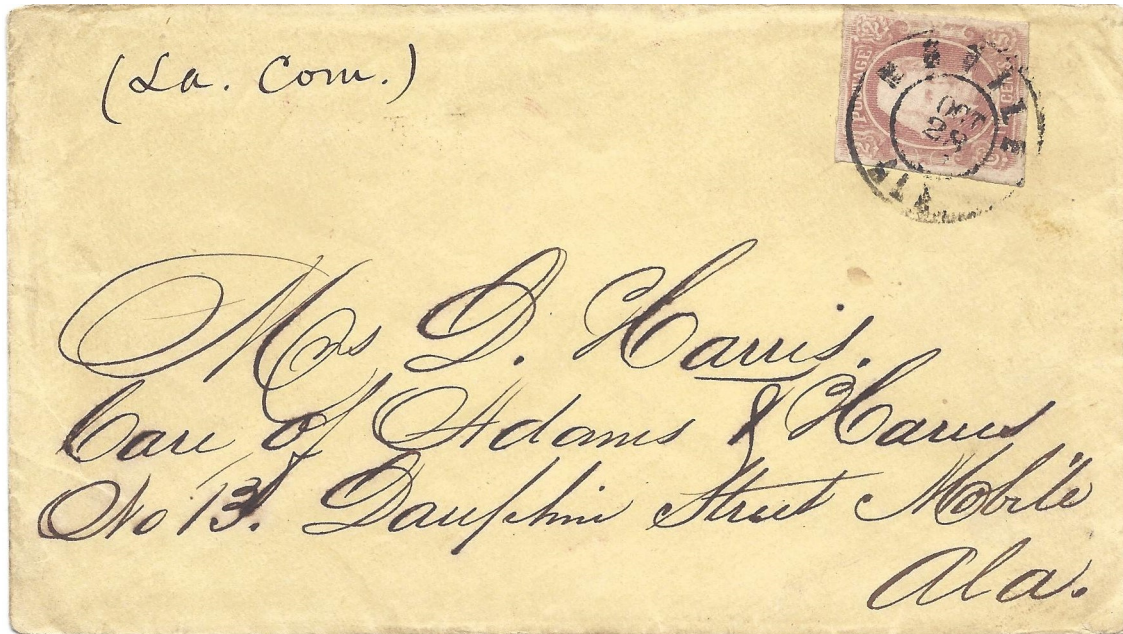 (La. Com.)
POSTAGE CENTS
MOBILE
OCT
28
ALA
Mrs D. Harris.
Care of Adams & Harris
No 13. Dauphin Street Mobile
Ala.